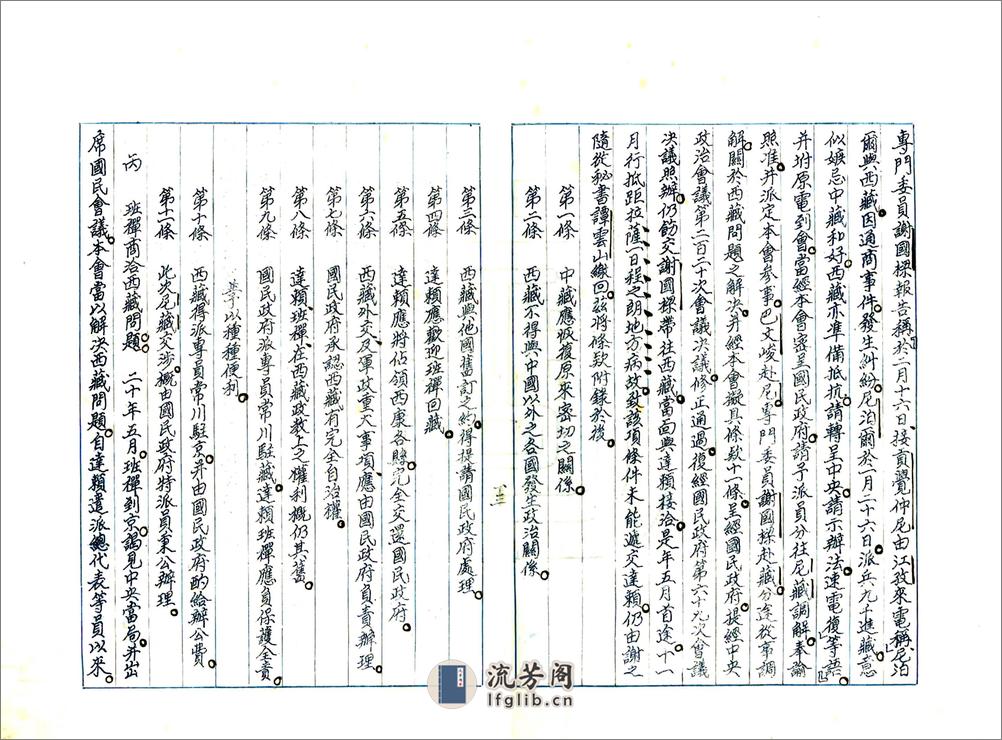 專門委員謝國樑報告稱於二月十六日接貢覺仲尼由江孜來電稱尼泊
爾與西藏因通商事件發生糾紛尼泊爾於一月二十六日派兵九千進藏意
似嫉忌中藏和好西藏亦準備抵抗請轉呈中央請示辦法速電復等語
并坿原電到會當經本會密呈國民政府請予派員分往尼藏調解奉諭
照准并派定本會參事巴文峻赴尼專門委員謝國樑赴藏分途從事調
解關於西藏問題之解決并經本會擬具條款十一條呈經國民政府提經中央
政治會議第二百二十次會議決議修正通過復經國民政府第六十九次會議
決議照辦仍飭交謝國樑帶往西藏當面與達賴接洽是年五月首途十一
月行抵距拉薩一日程之朗地方病故致該項條件未能遞交達賴仍由謝之
隨從秘書譚雲山繳回茲將條款附錄於後
第一條 中藏應恢復原來密切之關係
第二條 西藏不得與中國以外之各國發生政治關係
第三條 西藏與他國舊訂之約得提請國民政府處理
第四條 達賴應歡迎班禪回藏
第五條 達賴應將佔領西康各縣完全交還國民政府
第六條 西藏外交及軍政重大事項應由國民政府負責辦理
第七條 國民政府承認西藏有完全自治權
第八條 達賴班禪在西藏政教上之權利概仍其舊
第九條 國民政府派專員常川駐藏達賴班禪應負保護全責
并以種種便利
第十條 西藏得派專員常川駐京并由國民政府酌給辦公費
第十一條 此次尼藏交涉概由國民政府特派員秉公辦理
丙 班禪商洽西藏問題 二十年五月班禪到京謁見中央當局并出
席國民會議本會當以解決西藏問題自達賴遣派總代表等員以來
流芳阁
lfglib.cn